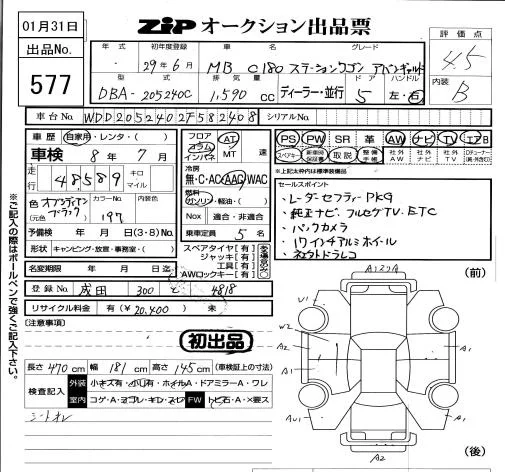 01月31日
出品No.
577
ZIP オークション出品票
評価点
4.5
内装
B
年式 初年度登録 車名 グレード
29年6月 MB C180 ステーションワゴン アバンギャルド
型式 排気量 ドア ハンドル
DBA-205240C 1,590 cc ディーラー・並行 5 左・右
車台No. WDD2052402F582408 シリアルNo.
車歴 自家用・レンタ・( )
車検 8年 7月
走行 48,589 キロ マイル
色 オブシディアンブラック カラーNo. 197 内装色
(元色)
予備検 年 月 日(3・8)No.
形状 キャンピング・放宣・事務室・( )
名変期限 年 月 日迄
登録No. 成田 300 4818
リサイクル料金 有(¥20,400) 未
フロア コラム インパネ AT MT 速
冷房 無・C・AC・AAC・WAC
燃料 ガソリン・軽油・( )
Nox 適合・非適合
乗車定員 5 名
スペアタイヤ[有]
ジャッキ[有]
工具[有]
AWロックキー[有]
PS PW SR 革 AW ナビ TV エアB
スペアキー 新車時保証書 取説 整備手帳 社外AW 社外ナビ 社外TV
※上記太枠内は標準装備品
セールスポイント
・レーダーセフティーPKG
・純正ナビ フルセグTV. ETC
・バックカメラ
・17インチアルミホイール
・ネオトドラレコ
(前)
【注意事項】
初出品
長さ 470 cm 幅 181 cm 高さ 145 cm (車検証上の寸法)
検査記入 外装 小キズ有・小凹有・ホイルA・ドアミラーA・ワレ
室内 コゲ・A・ヨゴレ・キレ・スレ FW トビ石・A・×要ス
シートスレ
A1
U1
W2
A2
A1
A1
AU1
A1
A2
(後)
※ご記入の際はボールペンで強くご記入下さい。